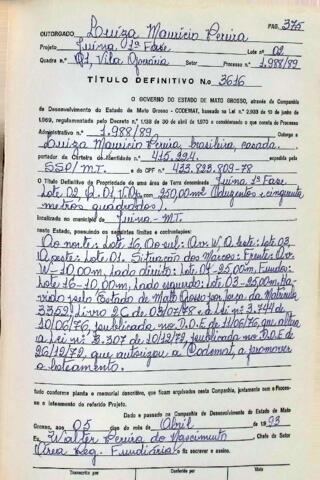 PAG. 375
OUTORGADO Luiza Mauricio Pereira
Projeto Juina 1ª Fase Lote nº 02
Quadra n.º Q1, Vila Operária Setor Processo n.º 1.988/89
TÍTULO DEFINITIVO No 3616
O GOVERNO DO ESTADO DE MATO GROSSO, através da Companhia
de Desenvolvimento do Estado de Mato Grosso - CODEMAT, baseado na Lei n.º 2.933 de 13 de junho de
1.969, regulamentada pelo Decreto n.º 1.138 de 30 de abril de 1970 e considerando o que consta do Processo
Administrativo n.º 1.988/89. Outorga a
Luiza Mauricio Pereira, brasileira, casada.
portador da Carteira de Identidade n.º 415.224. expedida pela
SSP/MT. e do CPF n.º 423.823.809-78
O Título Definitivo de Propriedade de uma área de Terra denominada Juina 1ª Fase
Lote: 02, Qd. 01, V.Op. com 250,00m2 (Duzentos e cinquenta
metros quadrados).
localizada no município de Juina - MT.
neste Estado, possuindo os seguintes limites e confrontações:
Ao norte: Lote 16, Ao sul: Av. W, A leste: Lote 03.
A oeste: Lote 01. Situação dos Marcos: Frente: Av.
W-10,00m, Lado direito: Lote 01-25,00m, Fundo:
Lote 16-10,00m, Lado esquerdo: Lote 03-25,00m. Ha-
vido pelo Estado de Mato Grosso por força da Matricula
3352, Livro 2C de 03/07/78. a Lei nº 3.744 de
10/06/76, publicada no D.O.E de 11/06/76, que altera
a Lei nº 3.307 de 10/12/72, publicada no D.O.E de
26/12/72, que autorizou a Codemat, a promover
o loteamento.
tudo conforme planta e memorial descritivo, que ficam arquivados nesta Companhia, juntamente com o Proces-
so e loteamento do referido Projeto.
Dado e passado na Companhia de Desenvolvimento do Estado de Mato
Grosso aos 05 dias do mês de Abril de 1993
Eu, Walter Pereira do Nascimento Chefe do Setor
Área Reg. Fundiária. fiz escrever e assino.
Transcrito por Conferido por Visto